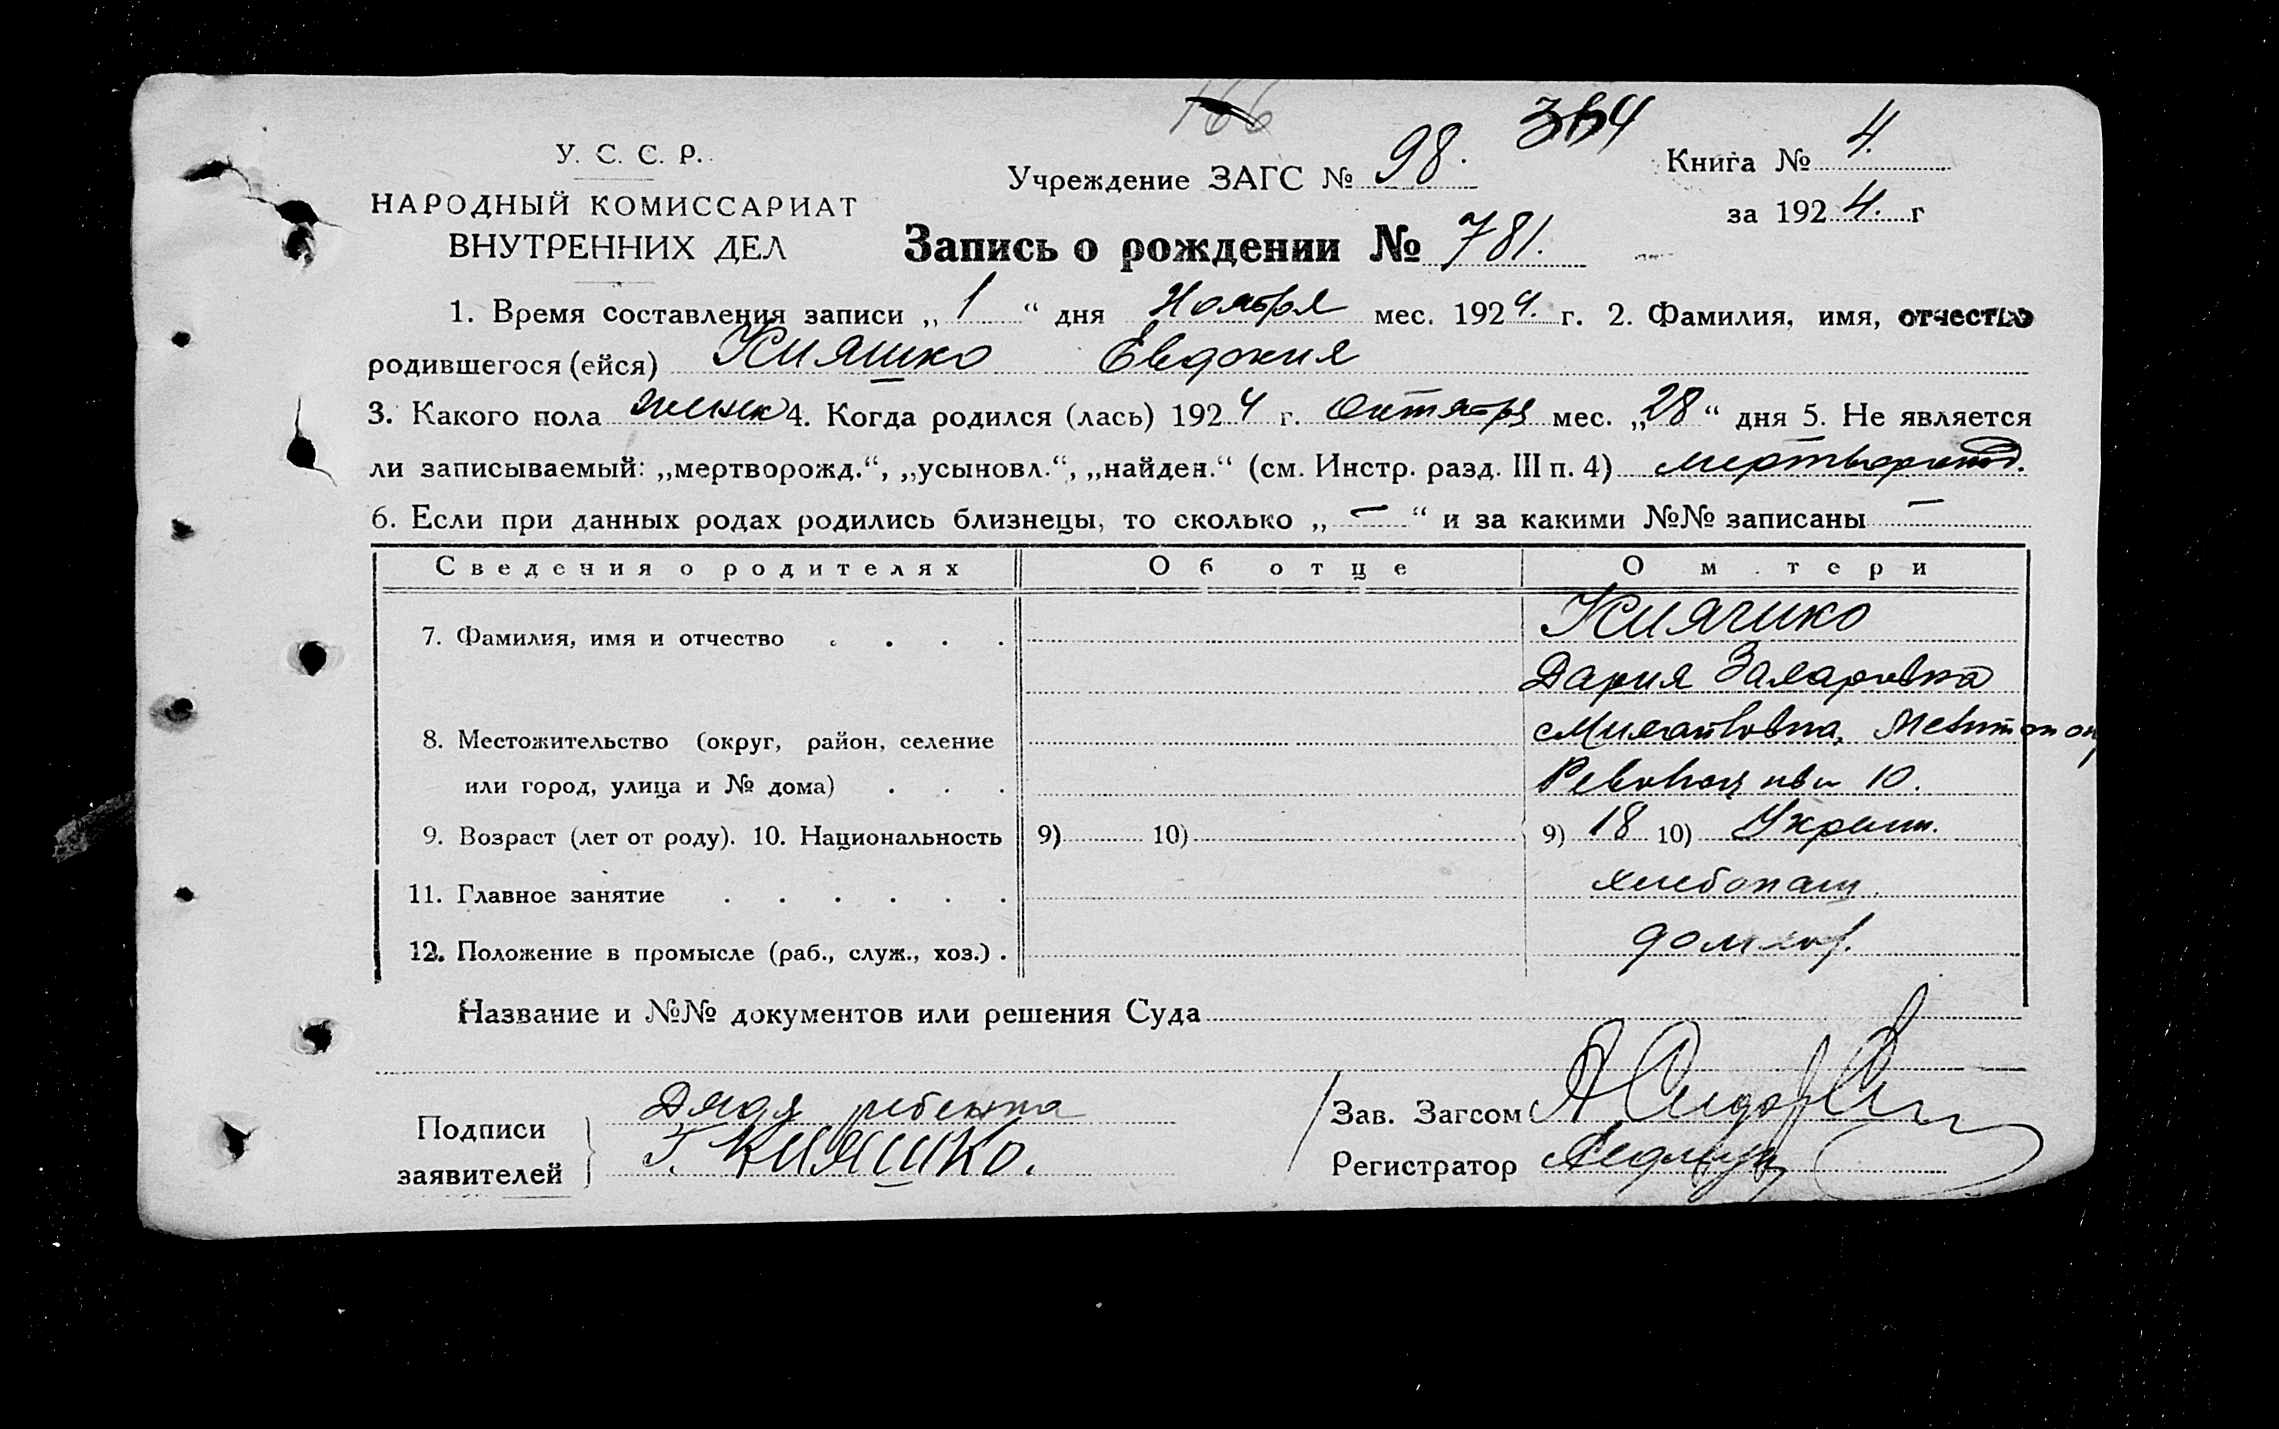 166
364
У. С. С. Р.
Учреждение ЗАГС № 98.
Книга № 4.
за 1924. г
НАРОДНЫЙ КОМИССАРИАТ
ВНУТРЕННИХ ДЕЛ
Запись о рождении № 781.
1. Время составления записи „ 1 “ дня Ноября мес. 1924. г. 2. Фамилия, имя, отчество
родившегося (ейся) Кияшко Евдокия
3. Какого пола женск 4. Когда родился (лась) 1924 г. Октября мес. „28“ дня 5. Не является
ли записываемый: „мертворожд.“, „усыновл.“, „найден.“ (см. Инстр. разд. III п. 4)
6. Если при данных родах родились близнецы, то сколько „ — “ и за какими №№ записаны —
Сведения о родителях Об отце О м тери
7. Фамилия, имя и отчество . . . . Кияшко
Дария Захаровна
8. Местожительство (округ, район, селение
или город, улица и № дома) . . . 10.
9. Возраст (лет от роду). 10. Национальность 9) 10) 9) 18 10) Украин.
11. Главное занятие . . . . . . хлебопаш.
12. Положение в промысле (раб., служ., хоз.) .
Название и №№ документов или решения Суда
Подписи
заявителей
Дядя ребенка
Г. Кияшко.
Зав. Загсом
Регистратор